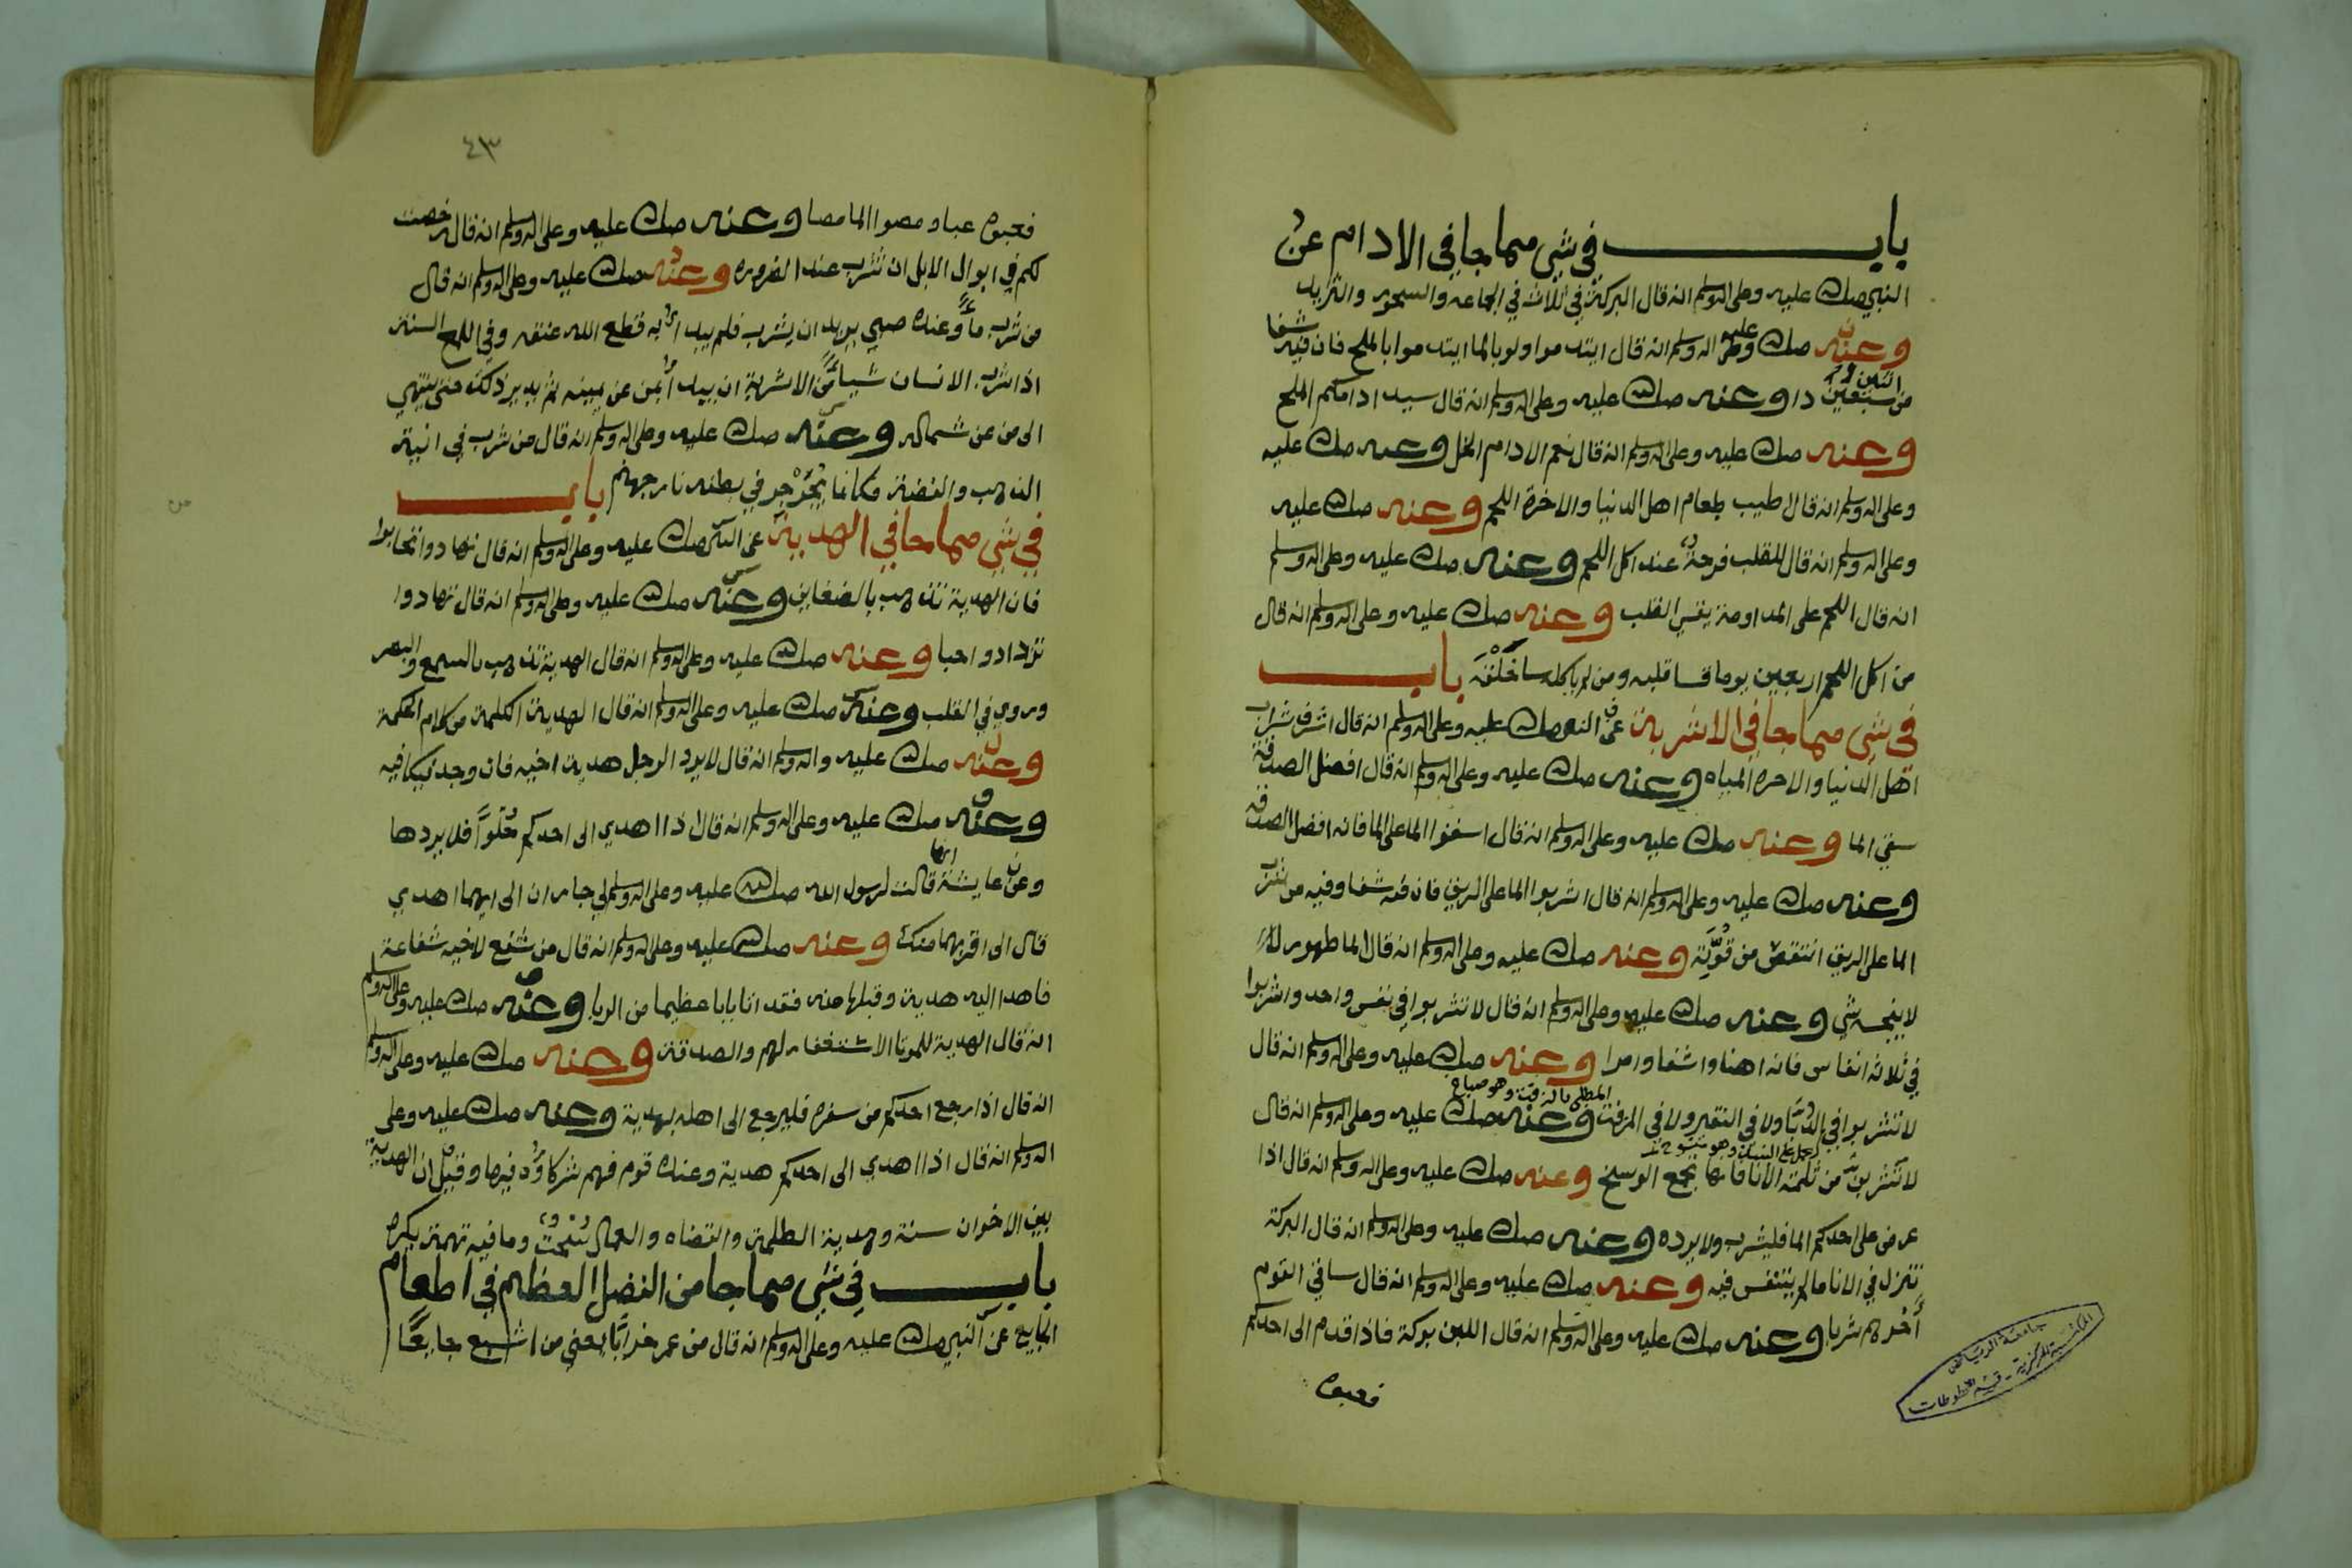 باب في شي مما جا في الادام عن
النبي صلى الله عليه وعلى اله وسلم انه قال البركة في ثلاث في الجماعه والسحور والثريد
وعنه صلى الله عليه وعلى اله وسلم انه قال ابتدموا ولو بالما ابتدموا بالملح فان فيه شفا
من اثنين وسبعين دا وعنه صلى الله عليه وعلى اله وسلم انه قال سيد ادامكم الملح
وعنه صلى الله عليه وعلى اله وسلم انه قال نعم الادام الخل وعنه صلى الله عليه
وعلى اله وسلم انه قال اطيب طعام اهل الدنيا والاخرة اللحم وعنه صلى الله عليه
وعلى اله وسلم انه قال للقلب فرحة عند اكل اللحم وعنه صلى الله عليه وعلى اله وسلم
انه قال اللحم على المداومة يقسي القلب وعنه صلى الله عليه وعلى اله وسلم انه قال
من اكل اللحم اربعين يوما قسا قلبه ومن لم ياكله سا خلقه باب
في شي مما جا في الاشربة عن النبي صلى الله عليه وعلى اله وسلم انه قال اشرف شراب
اهل الدنيا والاخره المياه وعنه صلى الله عليه وعلى اله وسلم انه قال افضل الصدقة
سقي الما وعنه صلى الله عليه وعلى اله وسلم انه قال اسقوا الما على الما فانه افضل الصدقه
وعنه صلى الله عليه وعلى اله وسلم انه قال اشربوا الما على الريق فان فيه شفا وفيه من شرب
الما على الريق انتقص من قوته وعنه صلى الله عليه وعلى اله وسلم انه قال الما طهور
لا ينجسه شي وعنه صلى الله عليه وعلى اله وسلم انه قال لا تشربوا في نفس واحد واشربوا
في ثلاثه انفاس فانه اهنا واشفا وامرا وعنه صلى الله عليه وعلى اله وسلم انه قال
المطلي بالزفت وهو
لا تشربوا في الدبا ولا في النقير ولا في المزفت وعنه صلى الله عليه وعلى اله وسلم انه قال
لا تشربن من ثلمة الانا فانها تجمع الوسخ وعنه صلى الله عليه وعلى اله وسلم انه قال اذا
عرض على احدكم الما فليشرب ولا يرده وعنه صلى الله عليه وعلى اله وسلم انه قال البركة
تنزل في الانا ما لم يتنفس فيه وعنه صلى الله عليه وعلى اله وسلم انه قال ساقي القوم
اخرهم شربا وعنه صلى الله عليه وعلى اله وسلم انه قال اللبن بركة فاذا قدم الى احدكم
فعبوه
جامعة الرياض
المكتبة المركزية - قسم المخطوطات
٤٣
فعبوه عبا ومصوا الما مصا وعنه صلى الله عليه وعلى اله وسلم انه قال رخصت
لكم في ابوال الابل ان تشرب عند الضروره وعنه صلى الله عليه وعلى اله وسلم انه قال
من شرب ما وعنده صبي يريد ان يشرب فلم يبدا به قطع الله عنقه وفي السنة
اذا شرب الانسان شيا من الاشربة ان يبدا بمن عن يمينه ثم يدير ذلك حتى ينتهي
الى من عن شماله وعنه صلى الله عليه وعلى اله وسلم انه قال من شرب في انية
الذهب والفضة فكانما يجرجر في بطنه نار جهنم باب
في شي مما جا في الهدية عن النبي صلى الله عليه وعلى اله وسلم انه قال تهادوا تحابوا
فان الهدية تذهب بالضغاين وعنه صلى الله عليه وعلى اله وسلم انه قال تهادوا
تزدادوا حبا وعنه صلى الله عليه وعلى اله وسلم انه قال الهدية تذهب بالسمع والبصر
وروي في القلب وعنه صلى الله عليه وعلى اله وسلم انه قال الهدية الكلمة من كلام الحكمة
وعنه صلى الله عليه واله وسلم انه قال لا يرد الرجل هدية اخيه فان وجد فليكافيه
وعنه صلى الله عليه وعلى اله وسلم انه قال اذا اهدي الى احدكم حلوا فلا يردها
وعن عايشة انها قالت لرسول الله صلى الله عليه وعلى اله وسلم لي جاران الى ايهما اهدي
قال الى اقربهما منك وعنه صلى الله عليه وعلى اله وسلم انه قال من شفع لاخيه شفاعة
فاهدا اليه هدية وقبلها منه فقد اتا بابا عظيما من الربا وعنه صلى الله عليه وعلى اله وسلم
انه قال الهدية للموتا الاستغفار لهم والصدقة وعنه صلى الله عليه وعلى اله وسلم
انه قال اذا رجع احدكم من سفره فليرجع الى اهله بهدية وعنه صلى الله عليه وعلى
اله وسلم انه قال اذا اهدي الى احدكم هدية وعنده قوم فهم شركاوه فيها وقيل ان الهدية
بين الاخوان سنة وهدية الظلمة والقضاه والعمال سحت وما فيه تهمة يكره
باب في شي مما جا من الفضل العظيم في اطعام
الجايع عن النبي صلى الله عليه وعلى اله وسلم انه قال من عمر خرابا يعني من اشبع جايعا